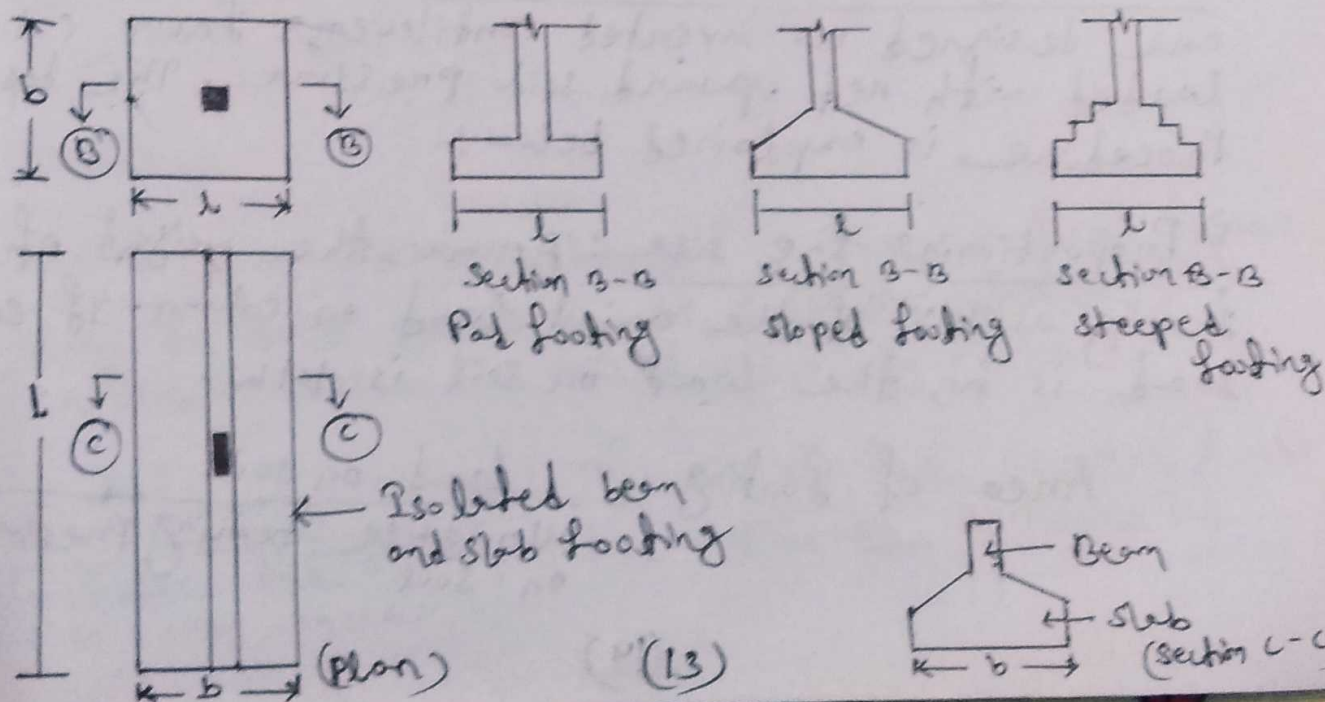 b
B
B
l
l
l
l
section B-B
Pad footing
section B-B
sloped footing
section B-B
steeped
footing
L
C
C
Isolated beam
and slab footing
Beam
slab
(section C-C
b
(Plan)
(13)
b